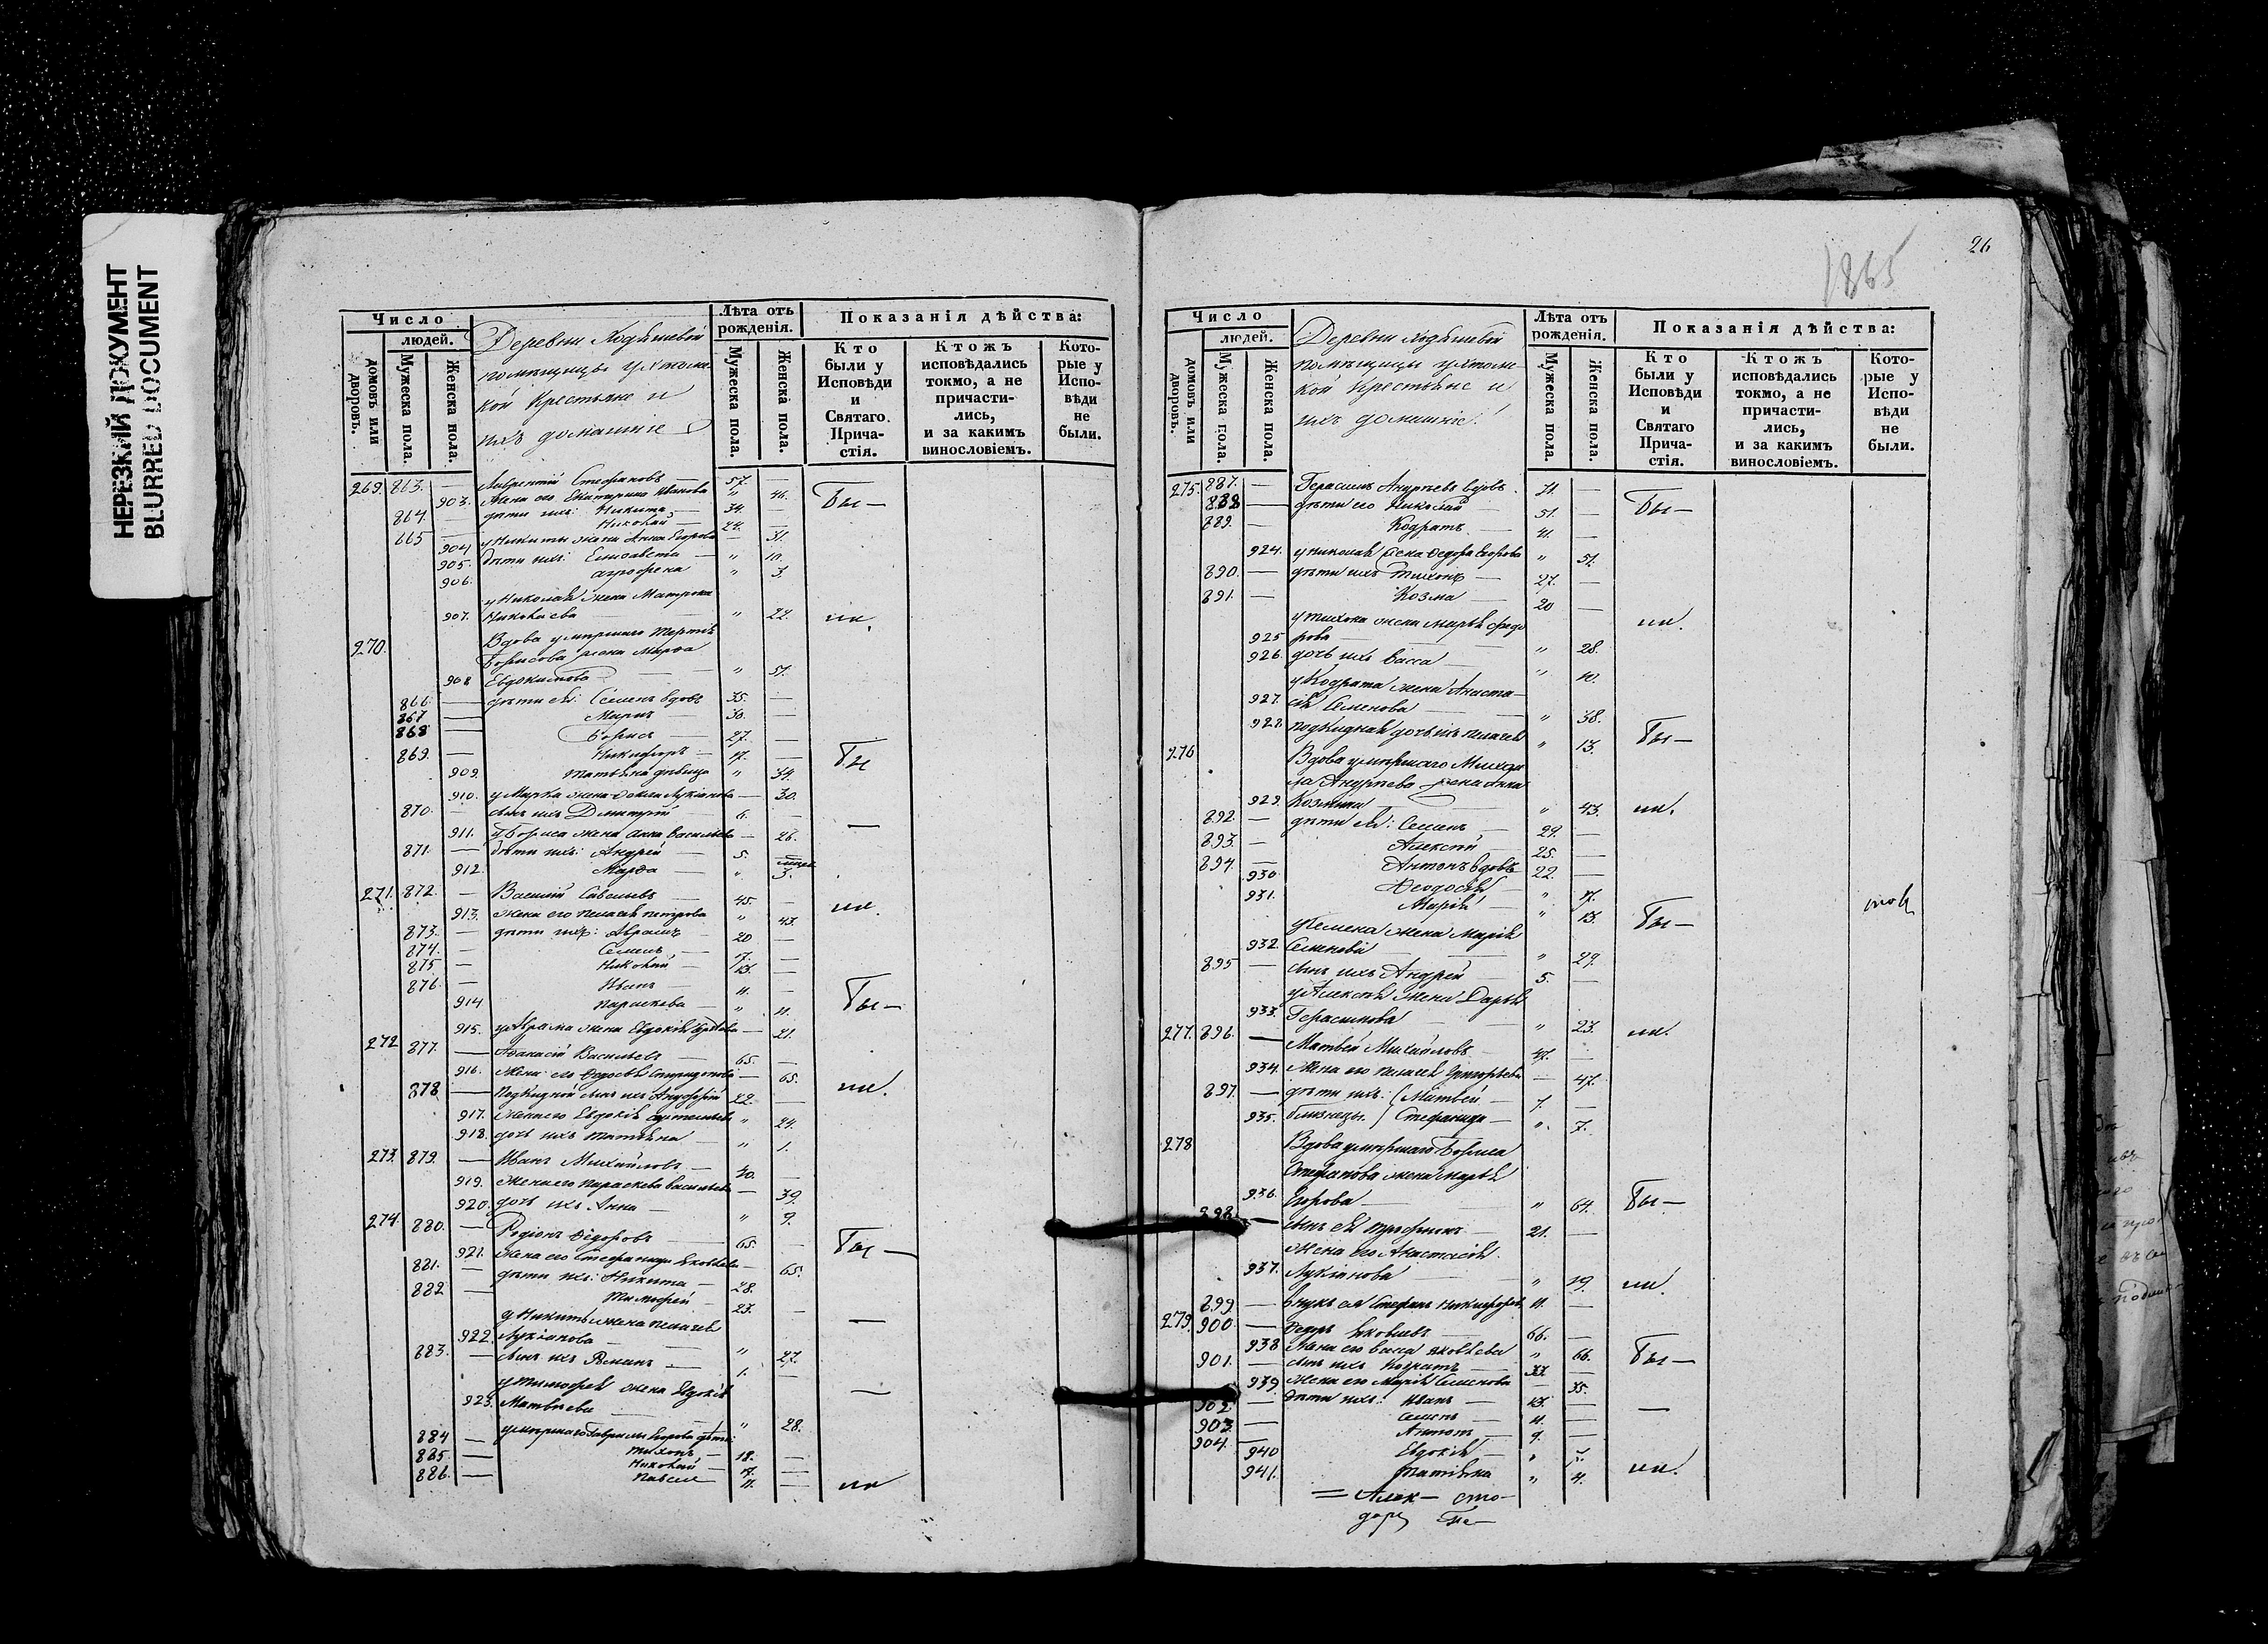 НЕРЕЗКИЙ ДОКУМЕНТ
BLURRED DOCUMENT
Число
людей.
домовъ или дворовъ.
Мужеска пола.
Женска пола.
Деревни Ходяшевой
помѣщицы Ухтом-
кой Крестьяне и
ихъ домашніе
Лѣта отъ рожденія.
Мужеска пола.
Женска пола.
Показанія дѣйства:
Кто были у Исповѣди и Святаго Прича-стія.
Ктожъ исповѣдались токмо, а не причасти-лись, и за какимъ винословіемъ.
Кото-рые у Испо-вѣди не были.
269. 863. — Лаврентій Стефановъ — 57. —
903. Жена его Екатерина Иванова " 46. Бы—
864. — дѣти ихъ: Никита — 34. —
865 — Николай — 24. —
904 у Никиты жена Анна Егорова — 31.
905. дѣти ихъ: Елисавета — " 10.
906. Агрофена " 3.
у Николая жена Матрона
907. Николаева — " 22. ли.
270. Вдова умершаго Терентія
Борисова жена Марѳа
908 Евдокимова — " 57.
866. — дѣти ея: Семенъ вдовъ 35. —
867 — Маркъ 30. —
868 — Борисъ — 27. —
869. — Никифоръ — 17. — Бы
909. Татьяна дѣвица " 34.
910. у Марка жена Ѳекла Лукіанова — 30.
870. — сынъ ихъ Димитрій — 6. —
911. у Бориса жена Анна Васильева — 26.
871. — дѣти ихъ: Андрей — 5. —
912. Марѳа — " 3.
271. 872. — Василій Савельевъ — 45. — ли.
913. Жена его Пелагея Петрова " 43.
873. — дѣти ихъ: Аврамъ — 20 —
874. — Семенъ — 17. —
875 — Николай — 13. —
876. — Иванъ — 11. —
914 Параскева — " 11. Бы—
915. у Аврама жена Евдокія — 21.
272 877. — Аѳанасій Васильевъ — 65. —
916. Жена его Ѳедосья Спиридонова — 65. ли.
878 — Подкидной сынъ ихъ 22. —
917. Жена его Евдокія " 24.
918. дочь ихъ Татьяна — " 1.
273. 879. — Иванъ Михайловъ — 40. —
919. Жена его Параскева Васильева — 39.
920. дочь ихъ Анна — " 9.
274. 880. — Родіонъ Ѳедоровъ — 65. — Бы—
921. Жена его Стефанида Яковлева — 65.
881. — дѣти ихъ: Никита — 28.
882 — Тимофей — 23. —
у Никиты жена Пелагея
922. Лукіанова — " 27.
883. — сынъ ихъ Романъ — 1. —
у Тимофея жена Евдокія
923. Матвѣева — " 28.
умершаго Гаврилы Егорова дѣти:
884 — Тихонъ — 18. —
885. — Николай — 17. —
886. — Павелъ — 11. — ли
1865
26
Число
людей.
домовъ или дворовъ.
Мужеска пола.
Женска пола.
Деревни Ходяшевой
помѣщицы Ухтом-
кой Крестьяне и
ихъ домашніе.
Лѣта отъ рожденія.
Мужеска пола.
Женска пола.
Показанія дѣйства:
Кто были у Исповѣди и Святаго Прича-стія.
Ктожъ исповѣдались токмо, а не причасти-лись, и за какимъ винословіемъ.
Кото-рые у Испо-вѣди не были.
275. 887. — Герасимъ Андреевъ вдовъ. 71. —
888 — дѣти его Николай — 51. — Бы—
889. — Кодратъ — 41. —
924. у Николая жена Ѳедора Егорова " 51.
890. — дѣти ихъ Тихонъ — 27. —
891. — Козма — 20 —
у Тихона жена Марья Ѳедо
925 рова — " 28. ли.
926. дочь ихъ Васса — " 10.
у Кодрата жена Анаста-
927. сія Семенова — " 38.
928. подкидная дочь ихъ Пелагея " 13. Бы—
276 Вдова умершаго Михаи
ла Андреева жена Анна
929. Козмина — " 43. ли.
892. — дѣти ея: Семенъ — 29. —
893. — Алексѣй — 25. —
894. — Антонъ вдовъ 22. —
930 Ѳеодосья — " 17.
931. Марія — " 13. Бы—
у Семена жена Марія
932. Семенова — " 29.
895 — сынъ ихъ Андрей — 5. —
у Алексѣя жена Дарья
933. Герасимова — " 23. ли.
277. 896. — Матвей Михайловъ 47. —
934. Жена его Пелагея Григорьева — 47.
897. — дѣти ихъ: Матвей — 7. —
935. близнецы. Стефанида — " 7.
278 Вдова умершаго Бориса
Стефанова жена Марья
936. Егорова — " 64. Бы—
898. — сынъ ея Трофимъ — 21. —
жена его Анастасія
937. Лукіанова — " 19. ли.
899. — внукъ ея Стефанъ Никифоровъ 11. —
279. 900. — Ѳедоръ Яковлевъ — 66. —
938 Жена его Васса Яковлева " 66. Бы—
901. — сынъ ихъ Кодратъ — 33. —
939 жена его Марія Семенова — 35.
902 — дѣти ихъ: Иванъ — 13. —
903. — Семенъ — 11. —
904. — Антонъ — 9. —
940 Евдокія — "
941. Татьяна " 4. ли.